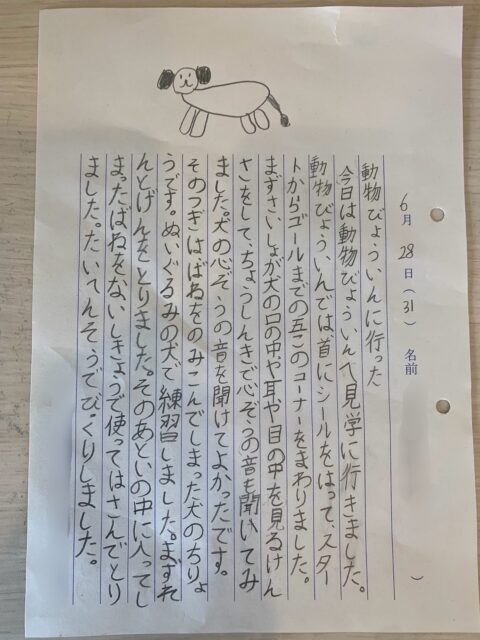 6月 28日（31） 名前（ ）
動物びょういんに行った
今日は動物びょういんへ見学に行きました。
動物びょういんでは首にシールをはって、スター
トからゴールまでの五このコーナーをまわりました。
まずさいしょが犬の口の中や耳や目の中を見るけん
さをして、ちょうしんきで心ぞうの音も聞いてみ
ました。犬の心ぞうの音を聞けてよかったです。
そのつぎはばねをのみこんでしまった犬のちりょ
うです。ぬいぐるみの犬で練習しました。まずれ
んとげんをとりました。そのあといの中に入ってし
まったばねをないしきょうで使ってはさんでとり
ました。たいへんそうでびっくりしました。